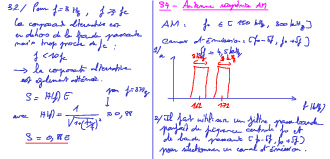 3.2/ Pour f=3 Hz, f > fc
La composante alternative est
en dehors de la bande passante
mais trop proche de fc :
f < 10 fc
→ la composante alternative
est légèrement atténuée.
S = H(f) E
avec H(f) = 1 / √(1+(f/fc)²) = 0,88
pour f=3Hz
S = 0,88 E
S4 - Antenne réceptrice AM
AM : f₀ ∈ [150 kHz, 300 kHz]
Canal d'émission : [f₀-δf, f₀+δf]
δf = 4,5 kHz
1/
162 172 f (kHz)
2/ Il faut utiliser un filtre passe bande
parfait de fréquence centrale f₀ et
de bande passante [f₀-δf, f₀+δf]
pour sélectionner un canal d'émission.